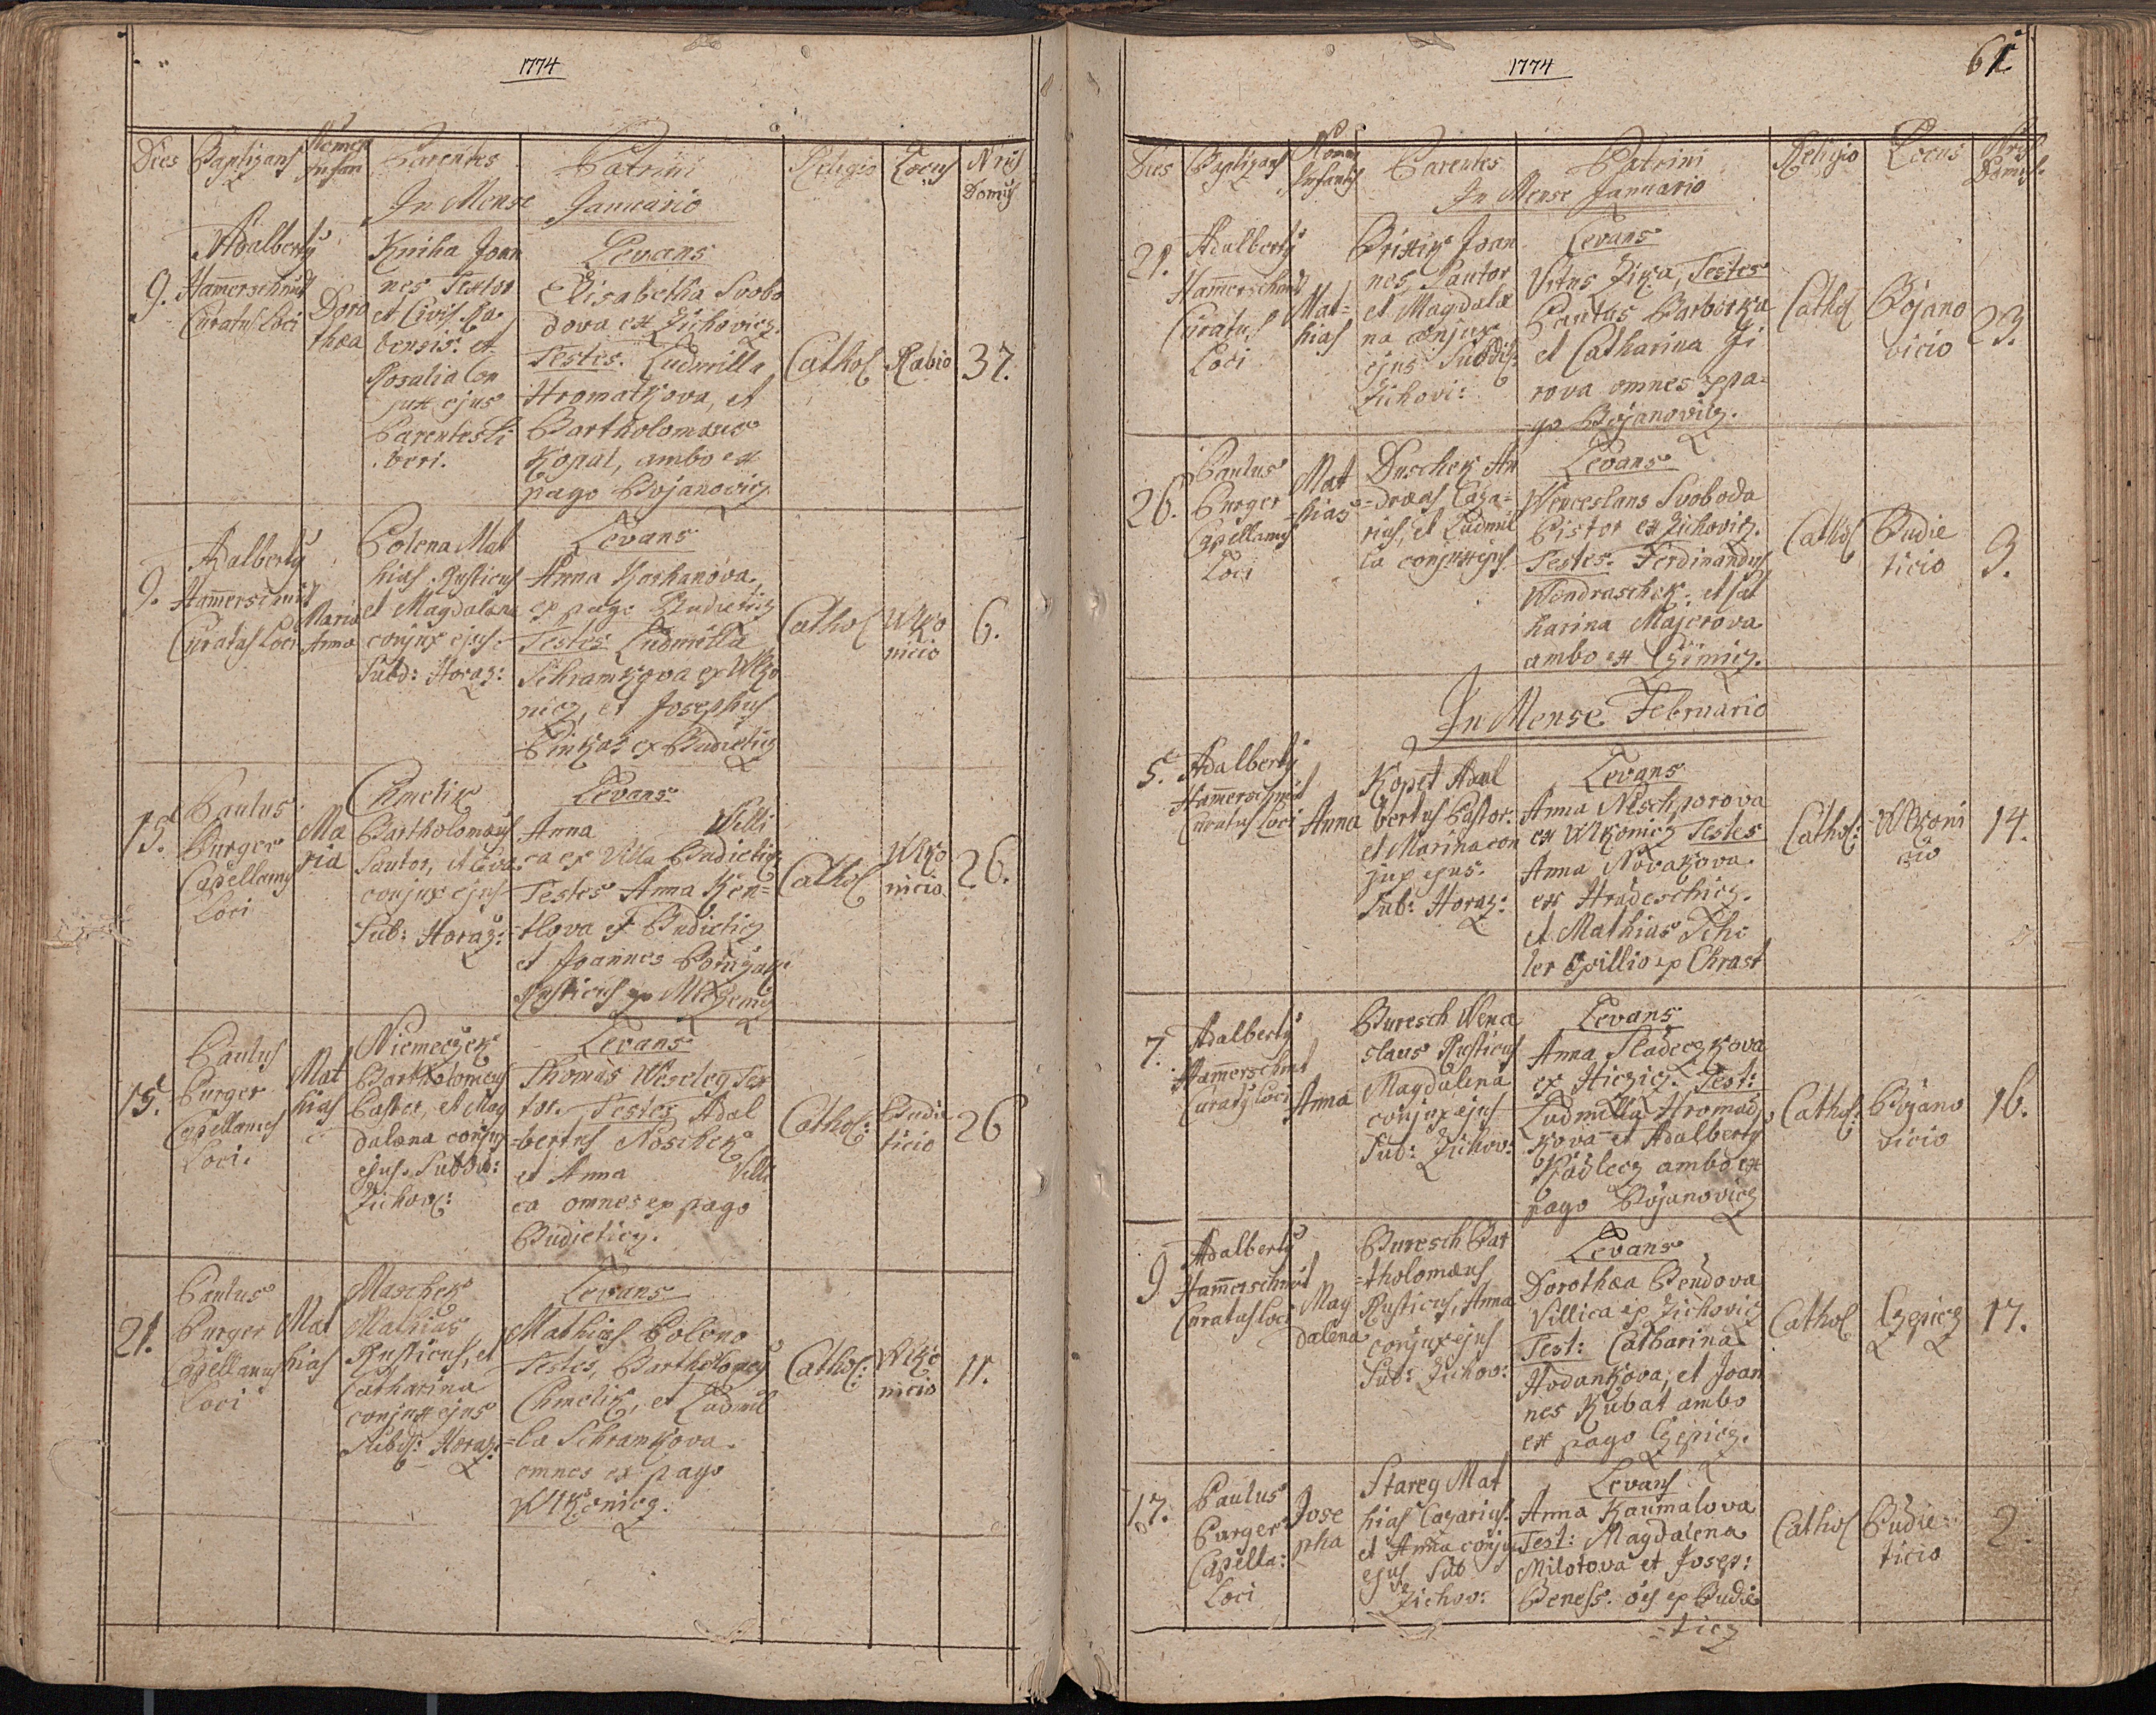 1774
Dies Baptizans Nomen Infan Parentes Patrini Religio Locus Nrus Domus
In Mense Januario
9.
Adalberty
Hamerschmit
Curatus Loci
Doro
thea
Kniha Joan
nes Textor
et Civis Ra
bensis. et
Rosalia Con
jux ejus
Parentes li
beri.
Levans
Elisabetha Svobo
dova ex Zichovicz.
Testes. Ludmilla
Hromatkova, et
Bartholomæus
Kopat, ambo ex
pago Bojanovicz
Cathol
Rabio
37.
9.
Adalberty
Hamerschmit
Curatus Loci
Maria
Anna
Polena Mat
hias Rusticus
et Magdalena
conjux ejus.
Subd: Horaz:
Levans
Anna
ex pago Budieticz
Testes Ludmilla
Schramkova ex Wlko
nicz, et Josephus
Pinkas ex Budieticz
Cathol
Wlko
nicio
6.
15.
Paulus
Purger
Capellanus
Loci
Ma
ria
Chmelik
Bartholomæus
Sartor, et Eva
conjux ejus
Sub: Horaz:
Levans
Anna Villi
ca ex Villa Budieticz
Testes Anna Ken=
tlova ex Budieticz
et Joannes
Rusticus ex
Cathol
Wlko
nicio
26.
15.
Paulus
Purger
Capellanus
Loci.
Mat
hias
Niemeczek
Bartholomeus
Pastor, et Mag
dalena conjux
ejus. Subdit:
Zichov:
Levans
Thomas Weseleg Sar
tor. Testes Adal
bertus Noschek
et Anna Villi
ca omnes ex pago
Budieticz.
Cathol:
Budie
ticio
26
21.
Paulus
Purger
Capellanus
Loci
Mat
hias
Maschek
Mathias
Rusticus, et
Catharina
conjux ejus
Subd: Horaz:
Levans
Mathias Poleno
Testes, Bartholomeus
Chmelik, et Ludmil
=la Schramkova.
omnes ex pago
Wlkonicz.
Cathol:
Wlko
nicio
11.
1774
61
Dies Baptizans Nomen Infantis Parentes Patrini Religio Locus Nrus Domus.
In Mense Januario
21.
Adalberty
Hamerschmid
Curatus
Loci
Mat=
hias
Joan
nes Sartor
et Magdale
na conjux
ejus Subdis:
Zichovi:
Levans
Vitus Zika, Testes
Paulus Barborka
et Catharina Ji
rova omnes ex pa=
go Bojanovicz.
Cathol
Bojano
vicio
23.
26.
Paulus
Purger
Capellanus
Loci
Mat
=hias
Duschek An
=dreas Casa=
rius, et Ludmil
la conjux ejus
Levans
Wenceslaus Svoboda
Pistor ex Zichovicz.
Testes. Ferdinandus
Wondraschek. et Cat
harina Majerova
ambo ex Czimicz.
Cathol
Budie
ticio
3.
In Mense Februario
5.
Adalberty
Hamerschmid
Curatus Loci
Anna
Kopet Adal
bertus Pastor.
et Marina con
jux ejus.
Sub: Horaz:
Levans
Anna
ex Wlkonicz Testes
Anna Novakova
ex Hradeschicz.
et Mathias
ler Opillio ex Chrast
Cathol:
Wlkoni
cio
14.
7.
Adalberty
Hamerschmit
Curaty Loci
Anna
Buresch Wence
slaus Rusticus
Magdalena
conjux ejus
Sub: Zichov:
Levans
Anna Sladeczkova
ex Hiczicz. Test:
Ludmilla Hromad
kova et Adalberty
Kadlecz ambo ex
pago Bojanovicz
Cathol:
Bojano
vicio
16.
9
Adalberty
Hamerschmit
Curatus Loci
Mag
dalena
Buresch Bar
=tholomæus
Rusticus, Anna
conjux ejus
Sub: Zichov:
Levans
Dorothea Bendova
Villica ex Zichovicz
Test: Catharina
Hodankova, et Joan
nes Kubat ambo
ex pago Czepicz.
Cathol
Czepicz
17.
17.
Paulus
Purger
Capella:
Loci
Jose
pha
Stareg Mat
hias Casarius.
et Anna conjux
ejus Sub
Zichov:
Levans
Anna Kaumalova
Test: Magdalena
Milotova et Josep:
Beness. ois ex Budie
=ticz
Cathol
Budie:
ticio
2.